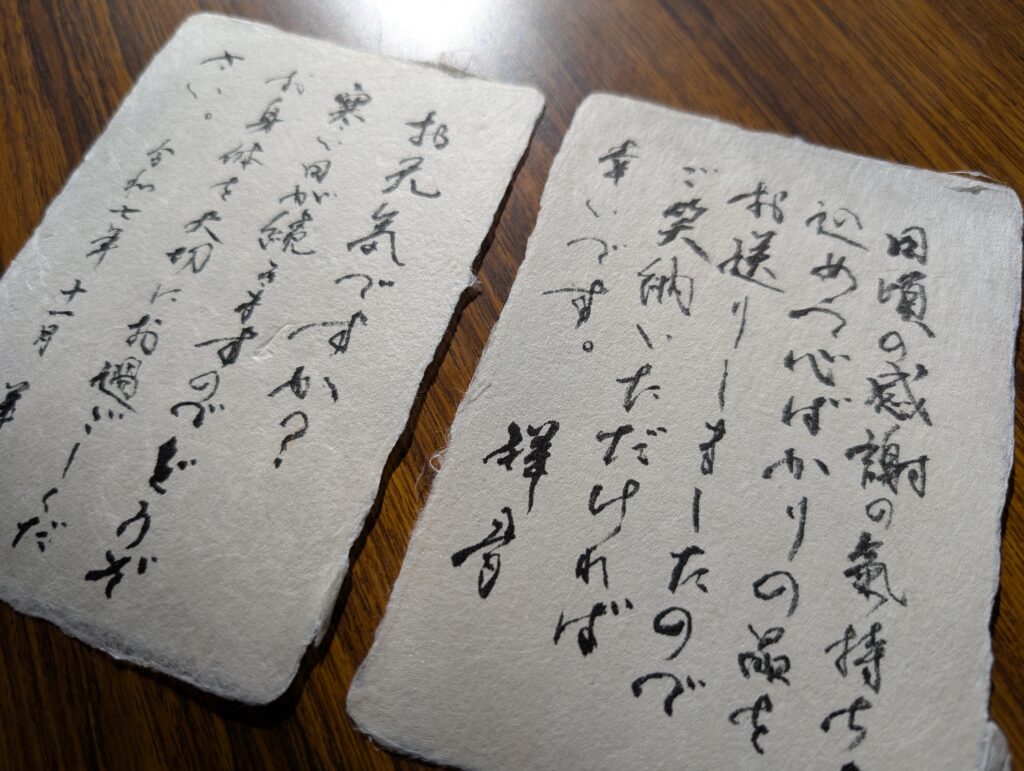 日頃の感謝の氣持ちを
込めて心ばかりの品を
お送りしましたので
ご笑納いただければ
幸いです。
祥月
お元氣ですか?
寒い日が続きますので
お身体を大切にお過ごしくだ
さい。
令和七年 十一月